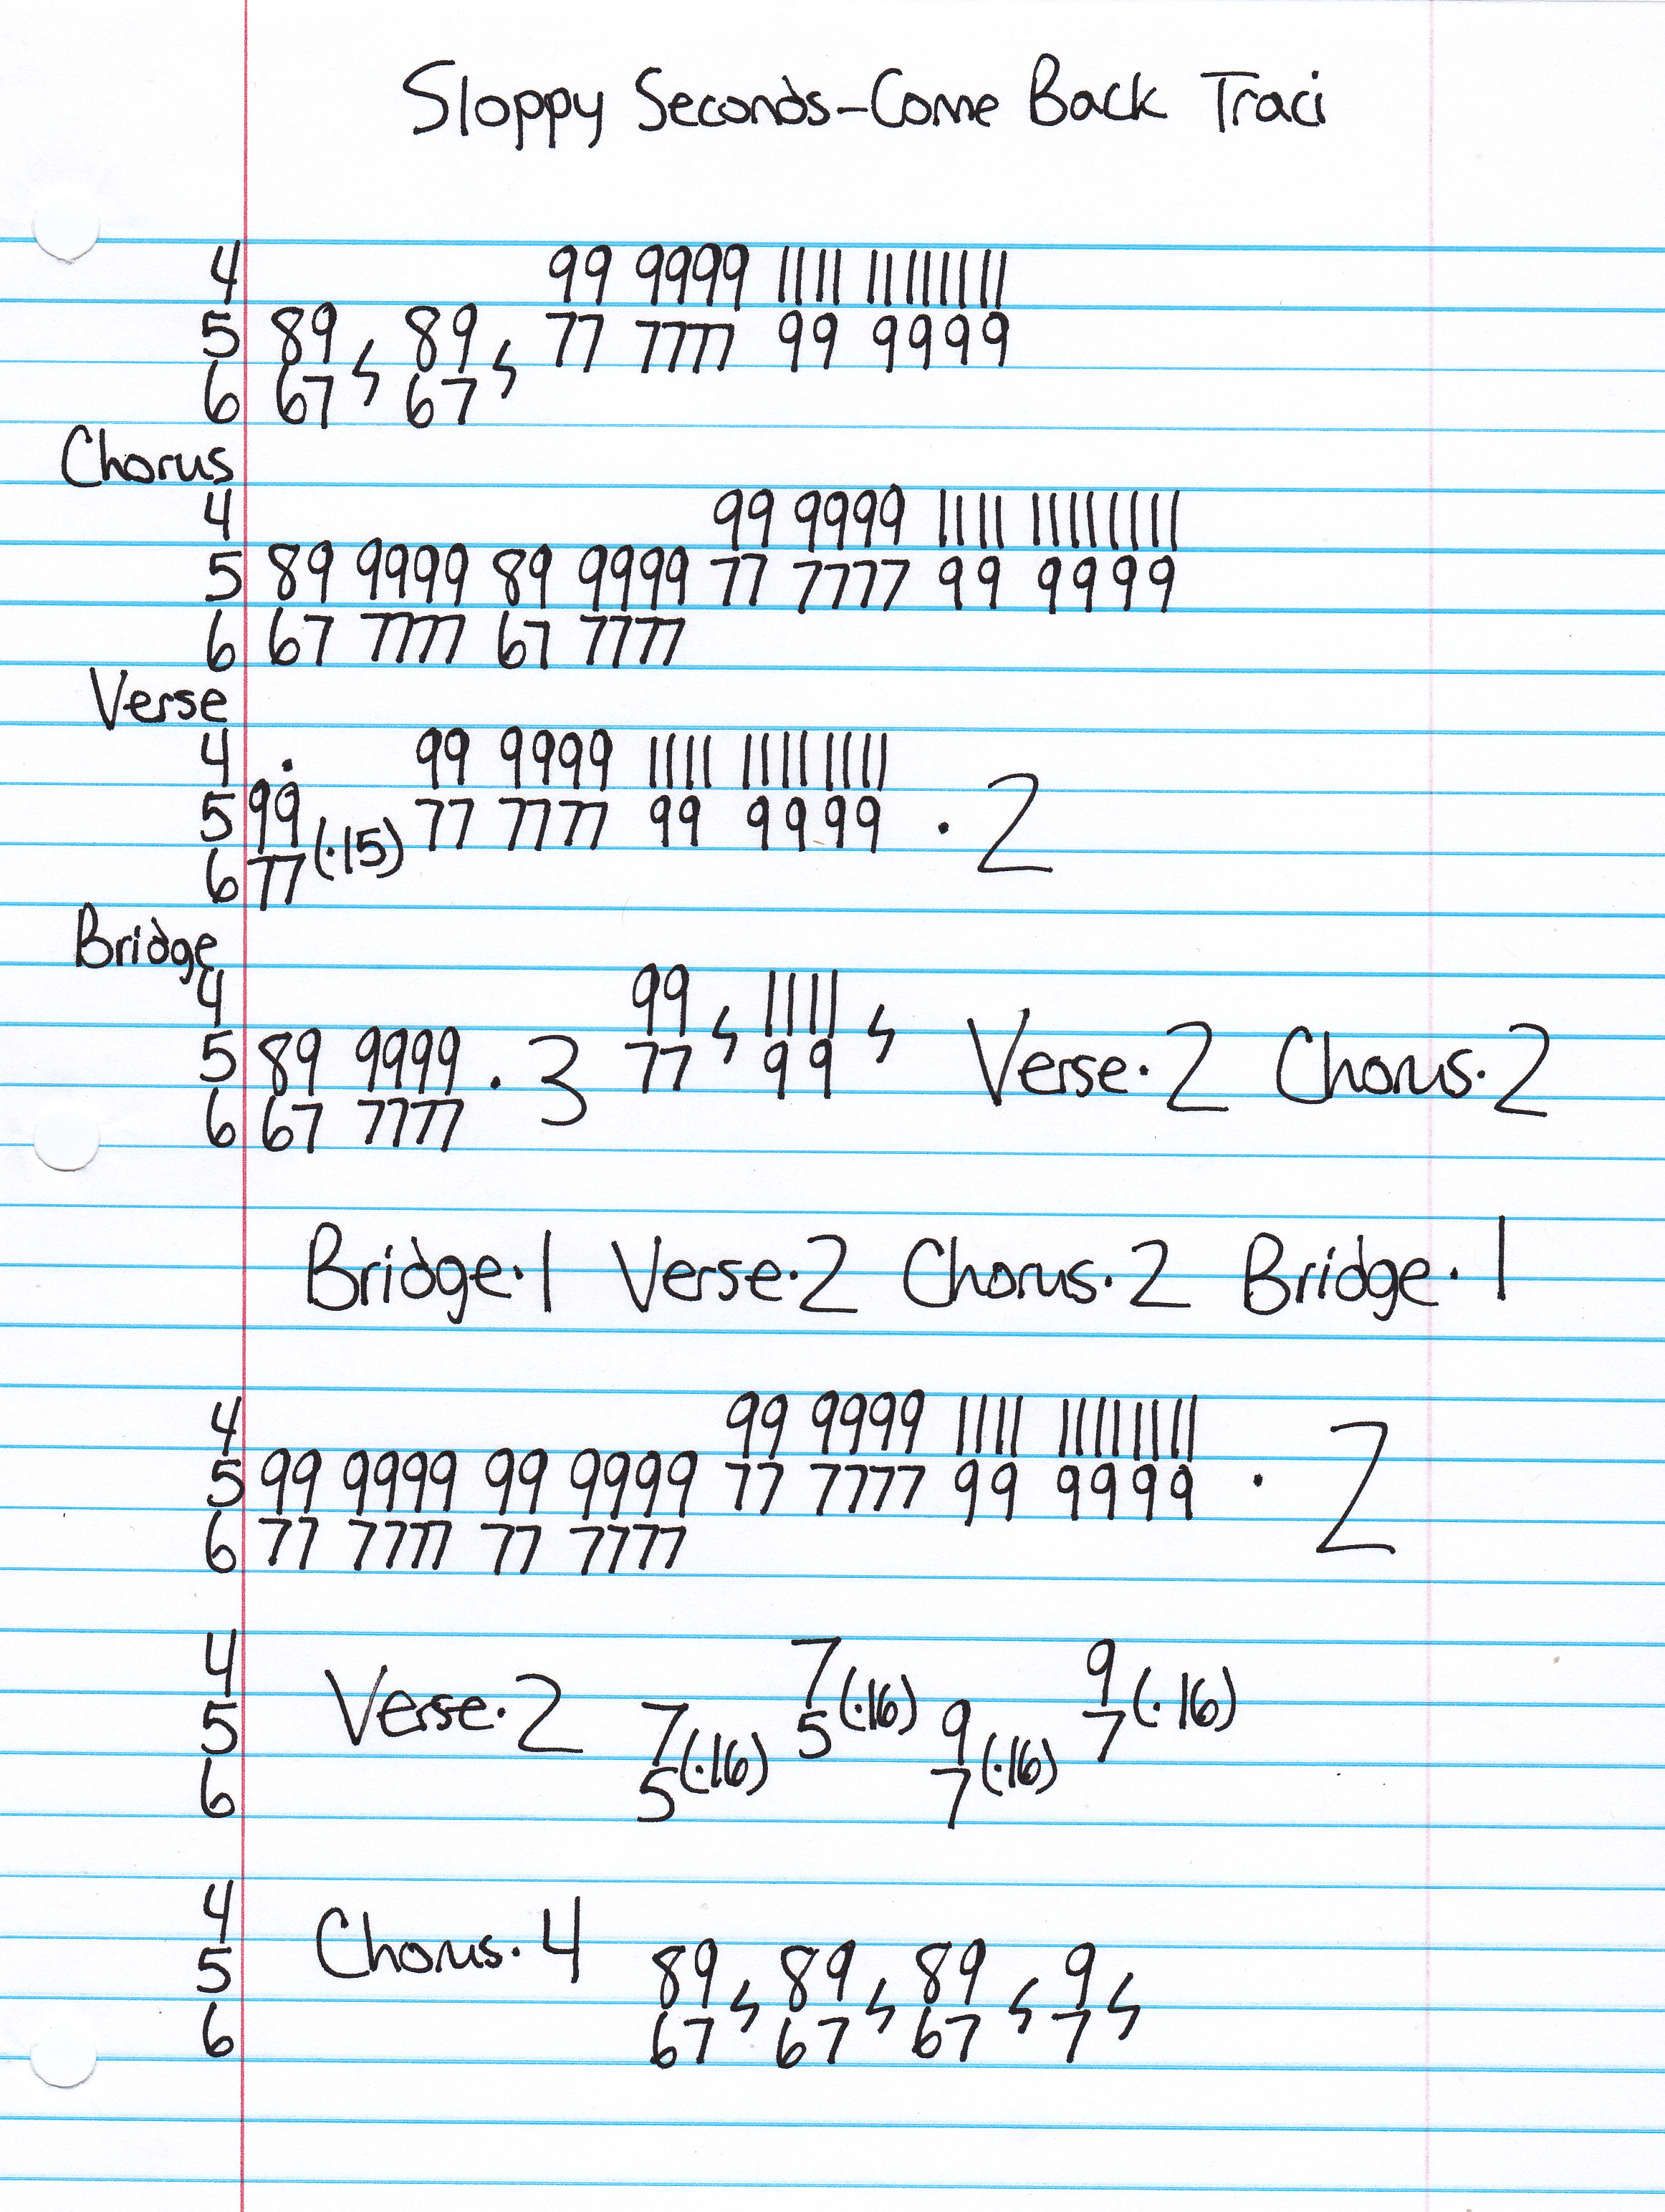 Sloppy Seconds-Come Back Traci
4 99 9999 1111 11111111
5 89 , 89 , 77 7777 99 9999
6 67 67
Chorus
4 99 9999 1111 11111111
5 89 9999 89 9999 77 7777 99 9999
6 67 7777 67 7777
Verse
4 . 99 9999 1111 11111111
5 99 (·15) 77 7777 99 9999 · 2
6 77
Bridge
4 99 , 1111 ,
5 89 9999 · 3 77 99 Verse·2 Chorus·2
6 67 7777
Bridge·1 Verse·2 Chorus·2 Bridge·1
4 99 9999 1111 11111111
5 99 9999 99 9999 77 7777 99 9999 · 2
6 77 7777 77 7777
4 7 9
5 Verse·2 7 5 (·16) 9 7 (·16)
6 5 (·16) 7 (·16)
4
5 Chorus·4 89 , 89 , 89 , 9 ,
6 67 67 67 7